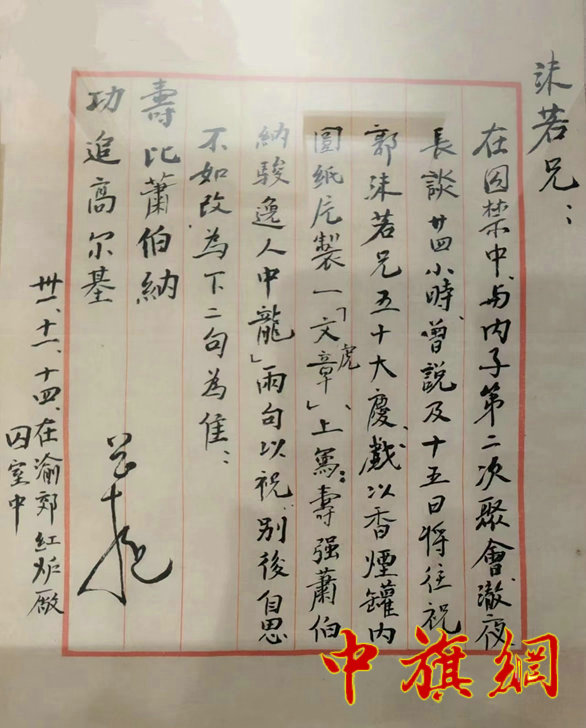 沫若兄：
在囚禁中、与内子第二次聚會、澈夜
長談廿四小時、曾説及十五日将往祝
郭沫若兄五十大慶、戲以香煙罐内
圓紙片製一「文虎章」、上寫：壽强蕭伯
納駿逸人中龍」兩句以祝、别後自思
不如改為下二句為佳：
壽比蕭伯納
功追高尔基
卅一、十一、十四、在渝郊红炉廠
囚室中
中旗網